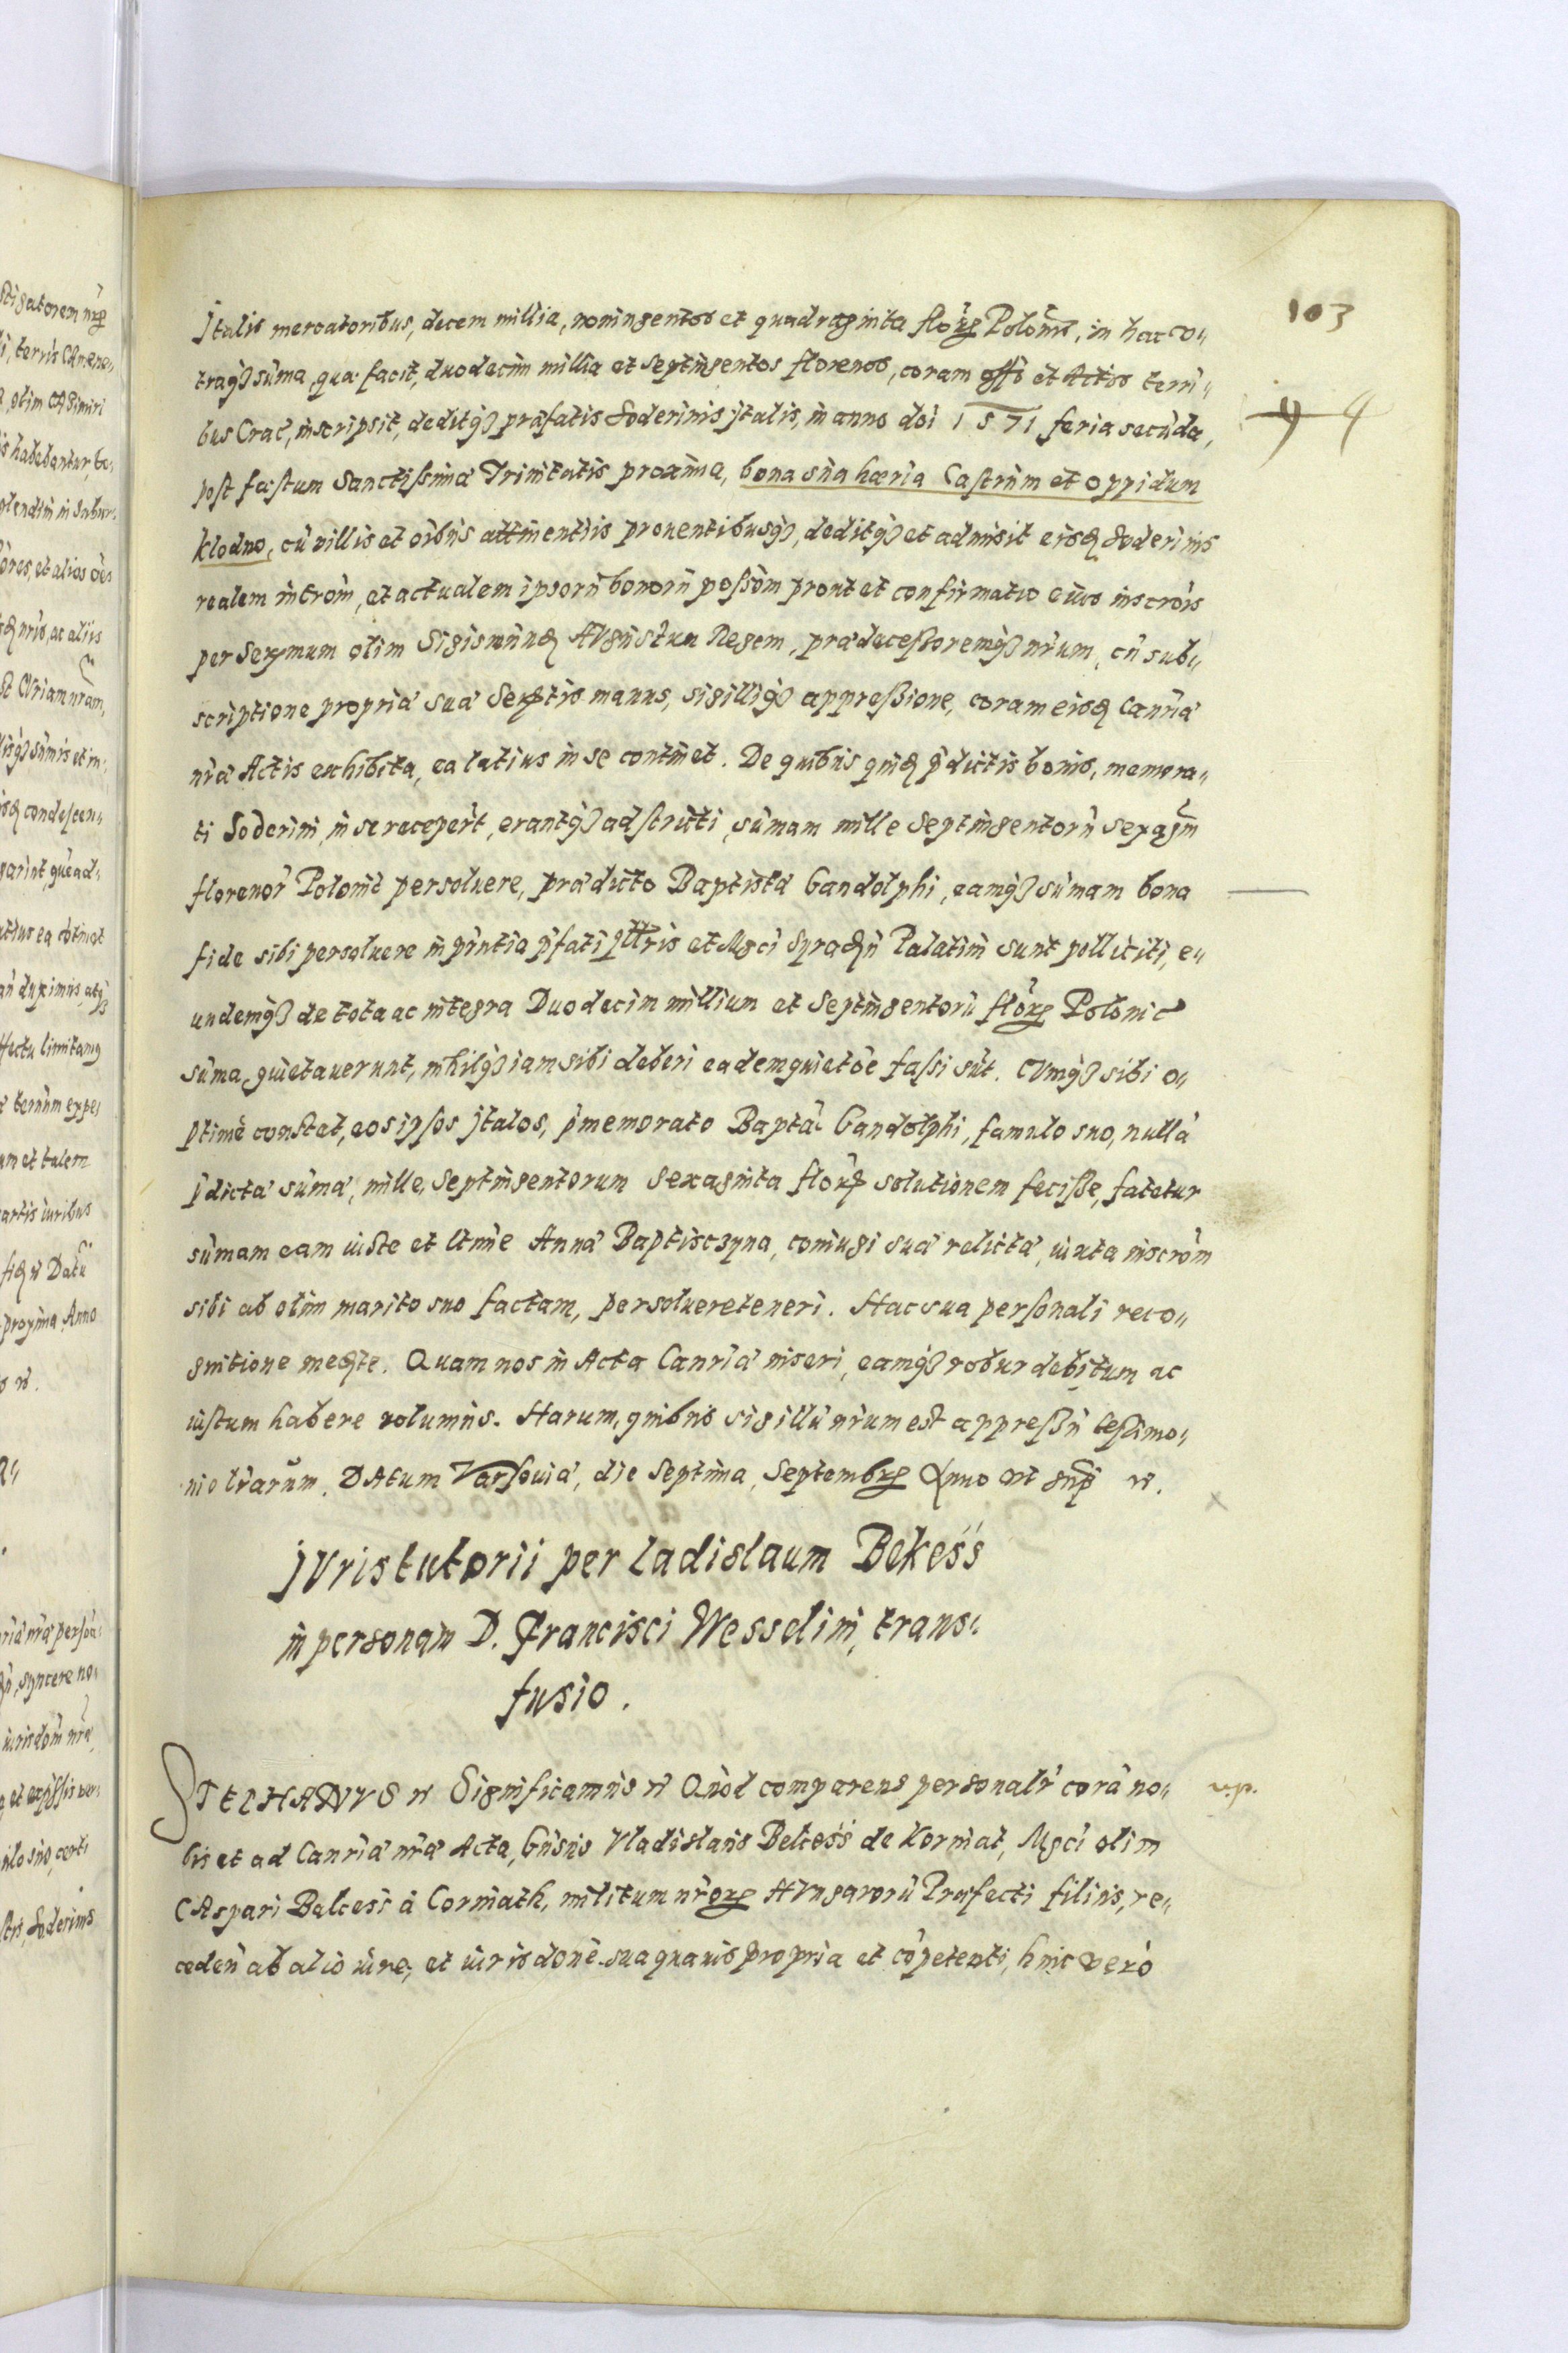 103
Italis mercatoribus, decem millia, noningentos et quadraginta floꝝ Polonic̃, in hac u-
traqȝ sũma, quæ facit, duodecim millia et septingentos florenos, coram offõ et Actis terri-
bus Crac̃, inscripsit, deditqȝ præfatis Soderinis Italis, in anno dñi 1571 feria secũda,
post fæstum Sanctissimæ Trinitatis proxima, bona sũa hæria Castrum et oppidum
Klodno, cũ villis et oĩbus attinentiis prouentibusqȝ, deditqȝ et admisit eisd Soderinis
realem intrõm, et actualem ipsorũ bonorũ possõm prout et confirmatio eius inscrõis
per Serẽmum olim Sigismund Augustum Regem, prædecessoremqȝ nrũm, cũ sub-
scriptione propria suæ Sertis manus, sigilliqȝ appressione, coram eisd Canriæ
nræ Actis exhibita, ea latius in se continet. De quibus quid p̃dictis bonis, memora-
ti Soderini, in se recepert, erantqȝ adstricti, sũmam mille septingentorũ sexagin
florenor̃ Polonic̃ persoluere, prædicto Baptistæ Gandolphi, eamqȝ sũmam bona
fide sibi persoluere in p̃ntia p̃fati Illtris et Mgci Syradñ Palatini sunt polliciti, e-
undemqȝ de tota ac integra Duodecim millium et septingentorũ floꝝ Polonic
sũma quietauerunt, nihilqȝ iam sibi deberi eadem quietõe fassi sũt. Cumqȝ sibi o-
ptime constet, eos ipsos Italos, p̃memorato Baptæ Gandolphi, famulo suo, nullã
p̃dictæ sũmæ, mille, septingentorum sexaginta floꝝ solutionem fecisse, fatetur
sũmam eam iuste et ltime Annæ Baptisczyna, coniugi suæ relictæ, iuxta inscrõm
sibi ab olim marito suo factam, persoluere teneri. Hac sua personali reco-
gnitione medte. Quam nos in Acta Canriæ inseri, eamqȝ robur debitum ac
iustum habere volumus. Harum, quibus sigillũ nrũm est appressũ testimo-
nio lrãrum. Datum Varsouiæ, die septima, Septembꝝ Anno ut sup̃ etc.
Iuris tutorii per Ladislaum Bekess
in personam D. Francisci Wesselini, trans-
fusio.
Stephanus etc Significamus etc Quod comparens personalr̃ corã no-
bis et ad Canriæ nræ Acta, Gnsus Vladislaus Bekess de Korniat, Mgci olim
Caspari Bekess à Corniath, militum nrõꝝ Hungarorũ Præfecti filius, re-
ceden̄ ab alio iure, et iurisdone sua quauis propria et cõpetenti, huic vero
v.p.